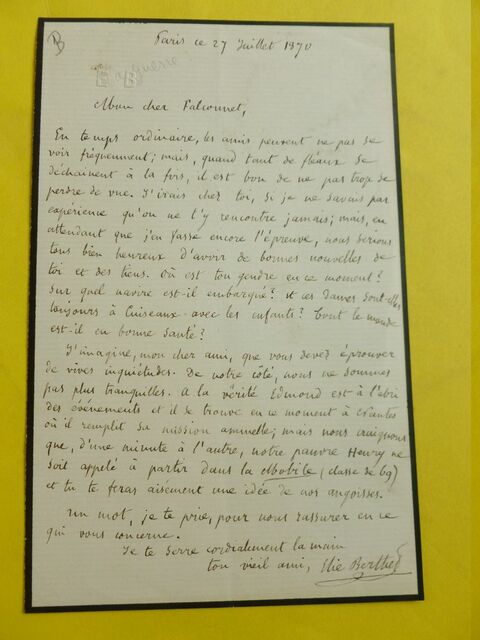 B
Paris ce 27 Juillet 1870
la guerre
EB
Mon cher Falconnet,
En temps ordinaire, les amis peuvent ne pas se
voir fréquemment ; mais, quand tant de fléaux se
déchaînent à la fois, il est bon de ne pas trop se
perdre de vue. J'irais chez toi, si je ne savais par
expérience qu'on ne t'y rencontre jamais ; mais, en
attendant que j'en fasse encore l'épreuve, nous serions
tous bien heureux d'avoir de bonnes nouvelles de
toi et des tiens. Où est ton gendre en ce moment ?
Sur quel navire est-il embarqué ? et ces Dames sont-elles
toujours à Cuiseaux avec les enfants ? Tout le monde
est-il en bonne santé ?
J'imagine, mon cher ami, que vous devez éprouver
de vives inquiétudes. De notre côté, nous ne sommes
pas plus tranquilles. A la vérité Edmond est à l'abri
des événements et il se trouve en ce moment à Nantes
où il remplit sa mission annuelle ; mais nous craignons
que, d'une minute à l'autre, notre pauvre Henry ne
soit appelé à partir dans la Mobile (classe de 69)
et tu te feras aisément une idée de nos angoisses.
Un mot, je te prie, pour nous rassurer en ce
qui vous concerne.
Je te serre cordialement la main
ton vieil ami, Elie Berthet